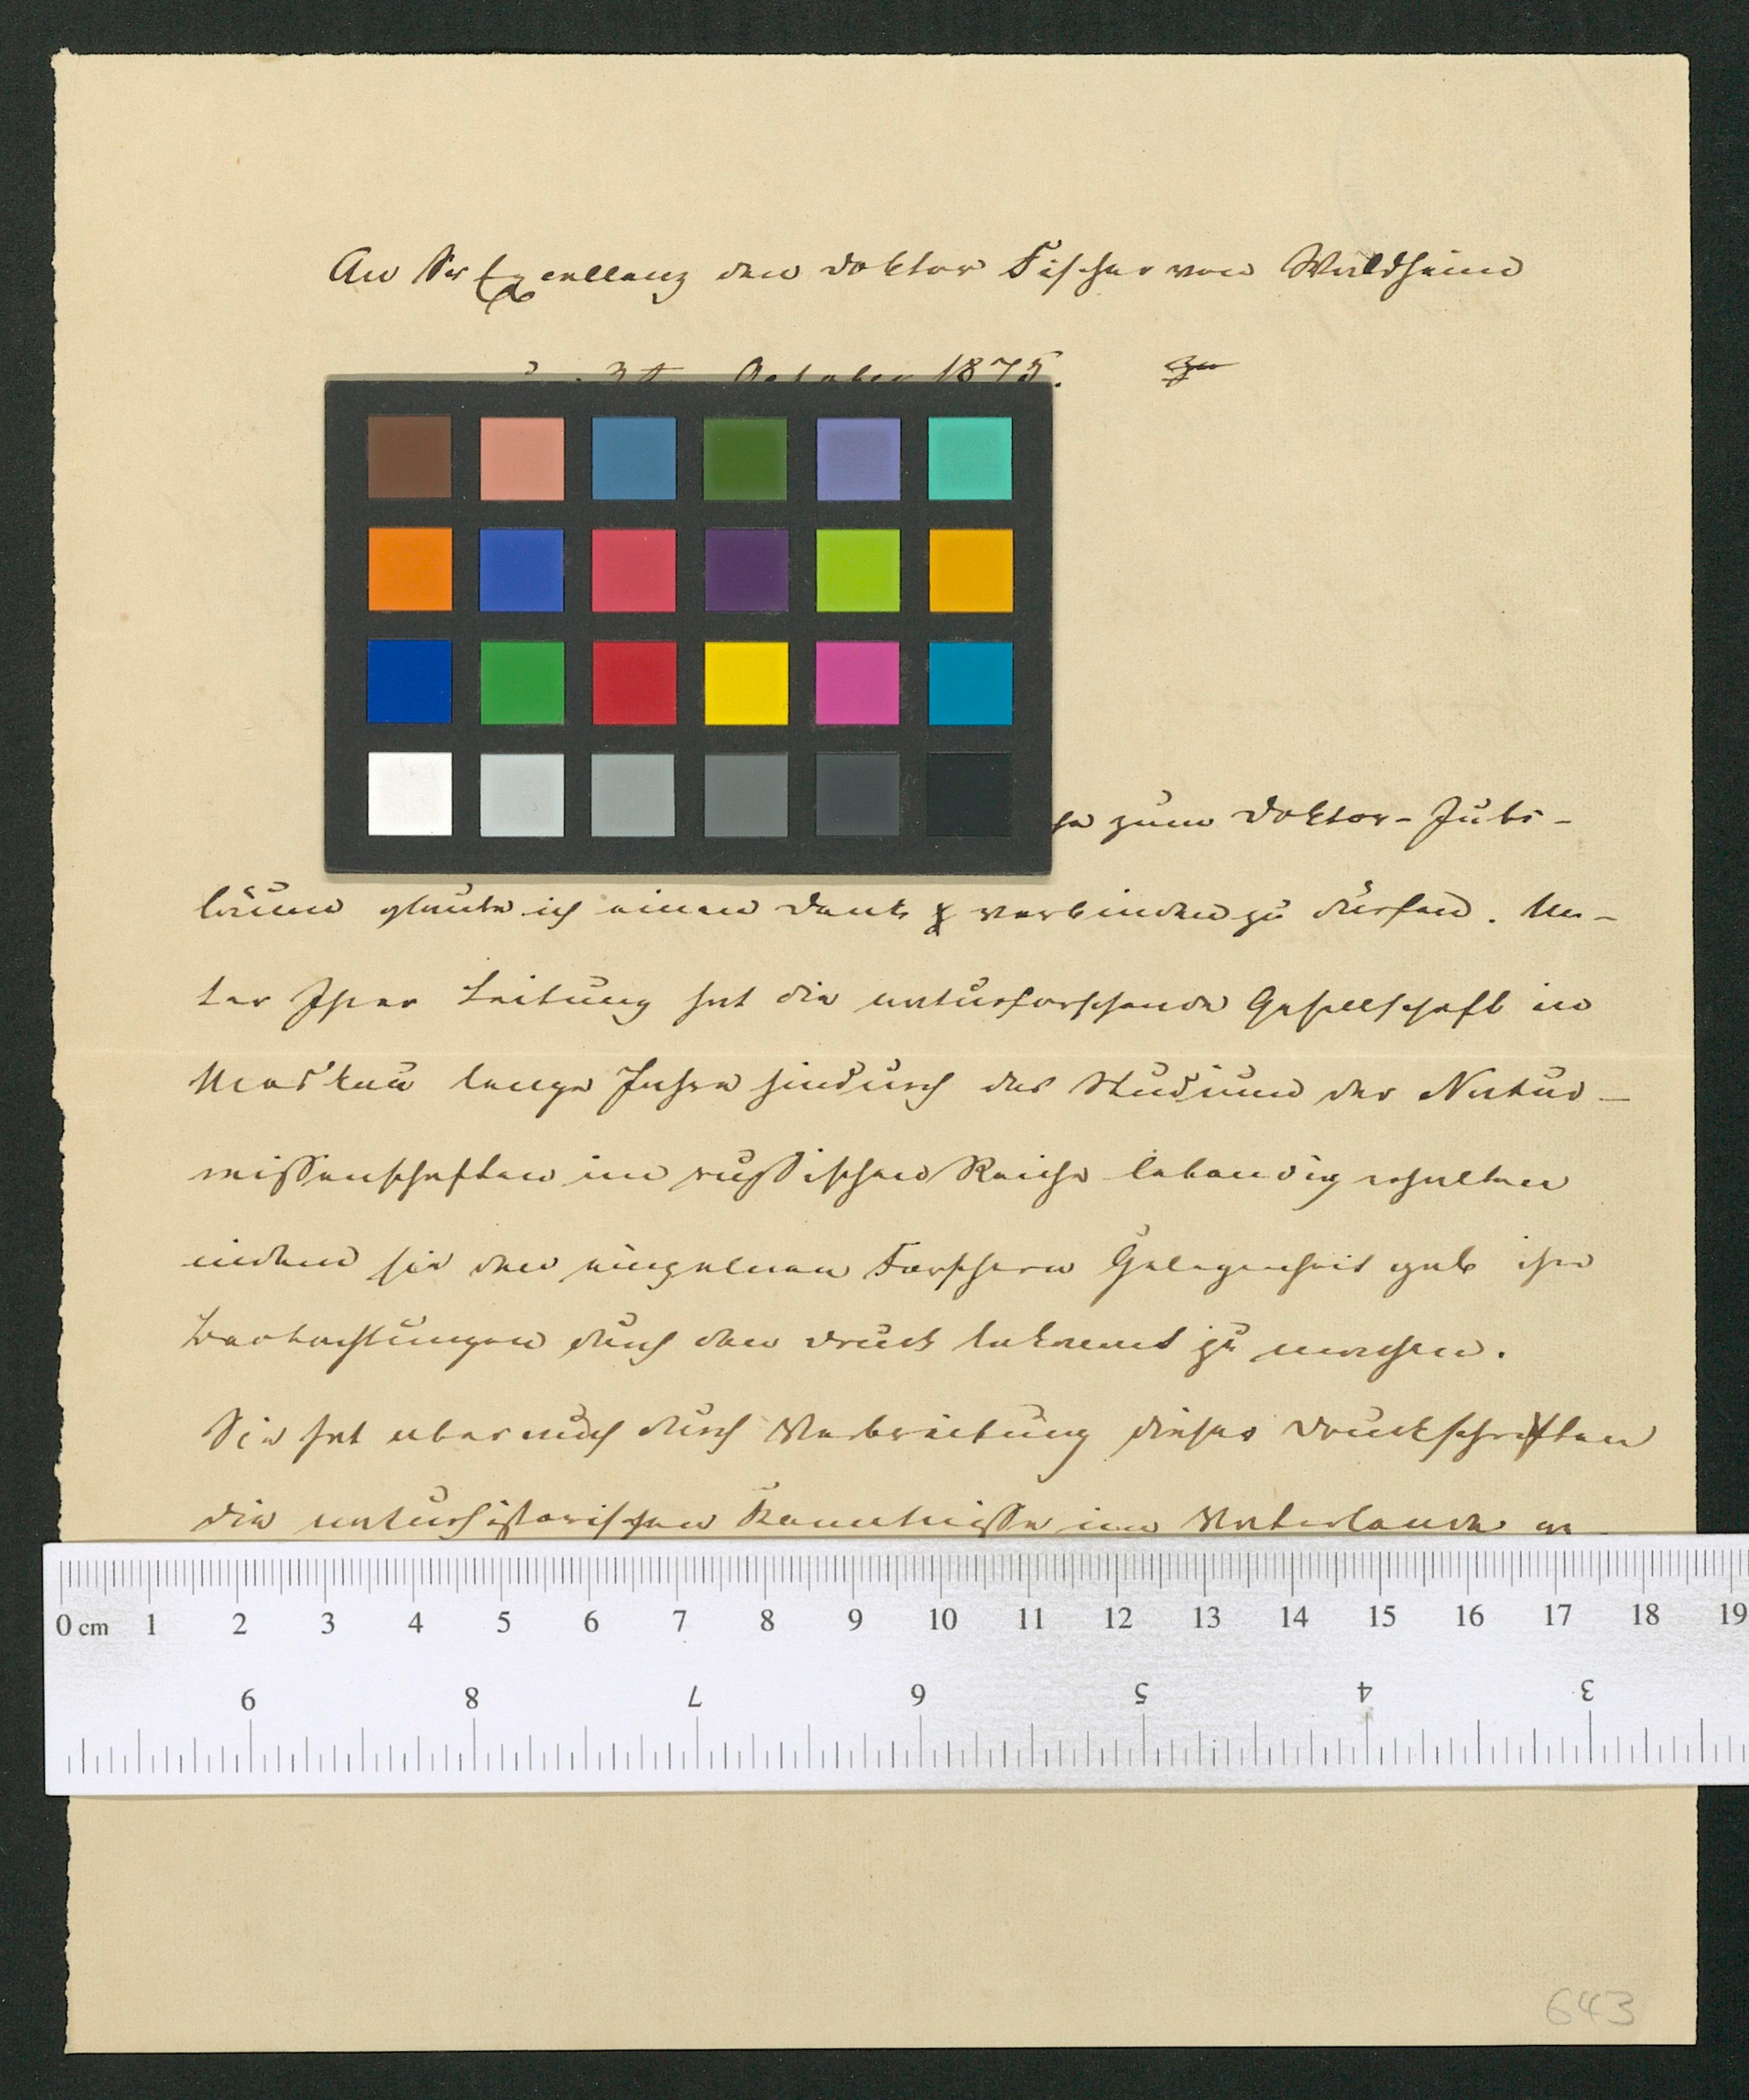 An Sr Excellenz den Doktor Fischer von Waldheim
October 1875.
zum Doktor-Jubi-
läum glaube ich einen Dank verbinden zu dürfen. Un-
ter Ihrer Leitung hat die naturforschende Gesellschaft in
Moskau lange Jahre hindurch das Studium der Natur-
wissenschaften im russischen Reiche lebendig erhalten
indem sie den einzelnen Forschern Gelegenheit gab ihre
Beobachtungen durch den Druck bekannt zu machen.
Sie hat aber auch durch Verbreitung dieser Druckschriften
die naturhistorischen Kenntnisse im Vaterlande er-
0 cm 1 2 3 4 5 6 7 8 9 10 11 12 13 14 15 16 17 18 19
9 8 7 6 5 4 3
643